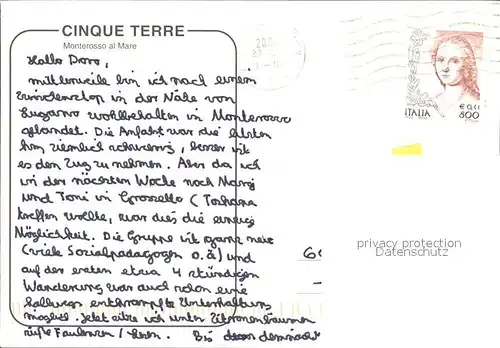 CINQUE TERRE
Monterosso al Mare
Hallo Doro,
mittlerweile bin ich nach einem
Zwischenstop in der Nähe von
Lugano wohlbehalten in Monterosso
gelandet. Die Anfahrt war die letzten
km ziemlich schwierig, besser ist
es den Zug zu nehmen. Aber da ich
in der nächsten Woche noch
und Toni in Grosseto (Toskana
treffen wollte, war dies die einzige
Möglichkeit. Die Gruppe ist ganz nett
(viele Sozialpädagogen o.ä) und
auf der ersten etwa 4 stündigen
Wanderung war auch schon eine
halbwegs entkrampfte Unterhaltung
möglich. Jetzt sitze ich unter Zitronenbäumen
Bis demnächst
ITALIA
€ 0,41
800
privacy protection
Datenschutz